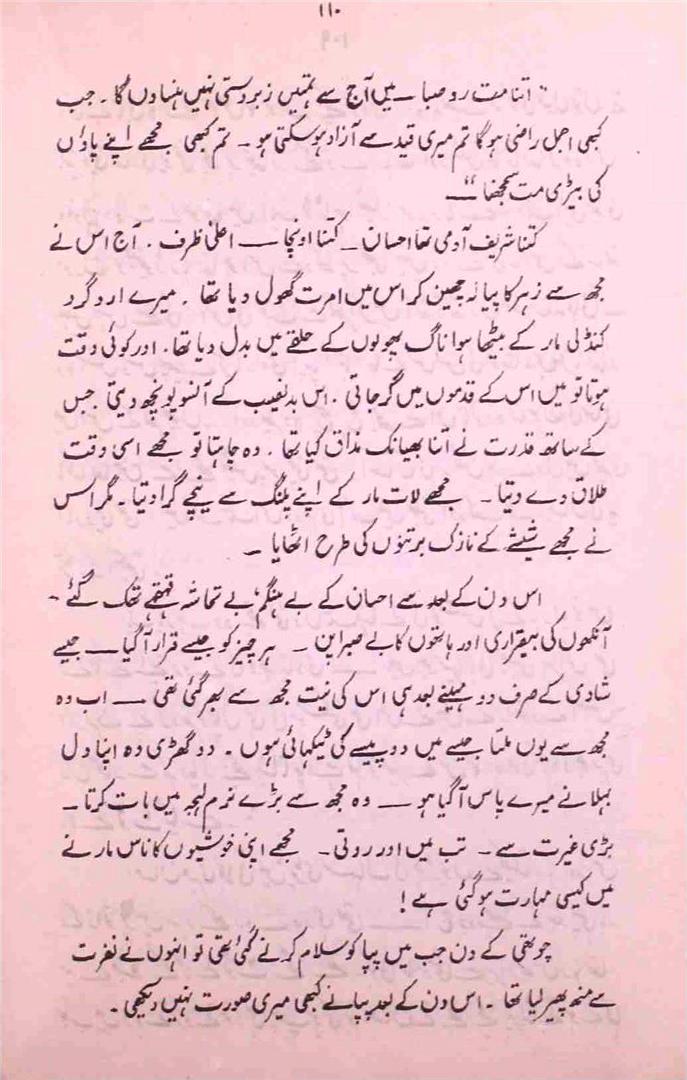 ۱۱۰
" اتنا مت رو صبا — میں آج سے تمہیں زبردستی نہیں ہنساوں گا ۔ جب
کبھی اجمل راضی ہوگا تم میری قید سے آزاد ہو سکتی ہو ۔ تم کبھی مجھے اپنے پاؤں
کی بیڑی مت سمجھنا " —
کتنا شریف آدمی تھا احسان — کتنا اونچا — اعلیٰ ظرف ۔ آج اس نے
مجھ سے زہر کا پیالہ چھین کر اس میں امرت گھول دیا تھا ۔ میرے ارد گرد
کنڈلی مار کے بیٹھا ہوا ناگ پھولوں کے حلقے میں بدل دیا تھا ۔ اور کوئی وقت
ہوتا تو میں اس کے قدموں میں گر جاتی ۔ اس بدنصیب کے آنسو پونچھ دیتی جس
کے ساتھ قدرت نے اتنا بھیانک مذاق کیا تھا ۔ وہ چاہتا تو مجھے اسی وقت
طلاق دے دیتا ۔ مجھے لات مار کے اپنے پلنگ سے نیچے گرا دیتا ۔ مگر اس
نے مجھے شیشے کے نازک برتنوں کی طرح اٹھایا ۔
اس دن کے بعد سے احسان کے بے ہنگم، بے تحاشہ قہقہے تھک گئے ۔
آنکھوں کی بیقراری اور ہاتھوں کا بے صبراپن ۔ ہر چیز کو جیسے قرار آگیا — جیسے
شادی کے صرف دو مہینے بعد ہی اس کی نیت مجھ سے بھر گئی تھی — اب وہ
مجھ سے یوں ملتا جیسے میں دو پیسے کی ٹیکھائی ہوں ۔ دو گھڑی وہ اپنا دل
بہلانے میرے پاس آگیا ہو — وہ مجھ سے بڑے نرم لہجہ میں بات کرتا ۔
بڑی غیرت سے ۔ تب میں اور روتی ۔ مجھے اپنی خوشیوں کا ناس مارنے
میں کیسی مہارت ہوگئی ہے !
چوتھی کے دن جب میں پپا کو سلام کرنے گئی تھی تو انہوں نے نفرت
سے منھ پھیر لیا تھا ۔ اس دن کے بعد پپا نے کبھی میری صورت نہیں دیکھی ۔